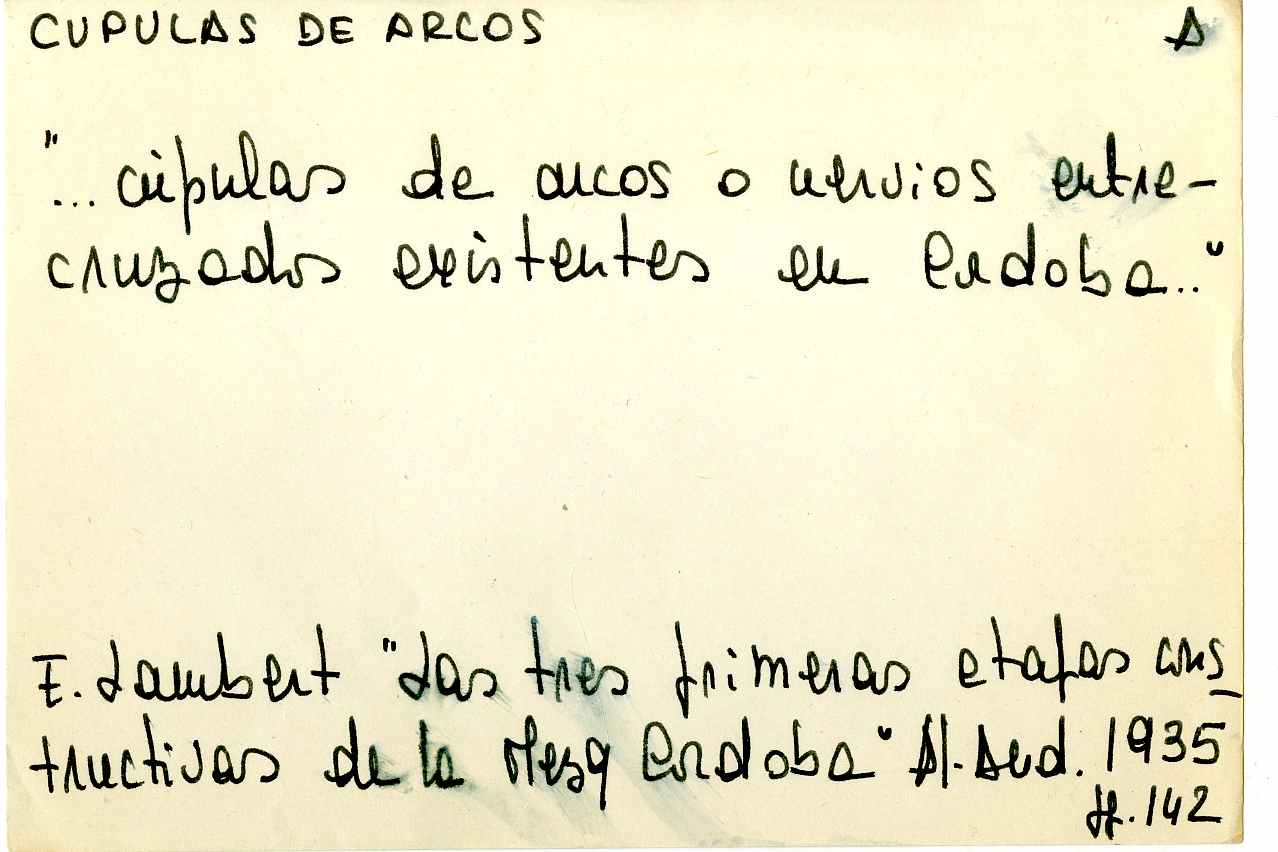 CUPULAS DE ARCOS A
"... cúpulas de arcos o nervios entre-
cruzados existentes en Cordoba.."
E. Lambert "Las tres primeras etapas cons
tructivas de la Mezq Cordoba" Al-And. 1935
pp. 142